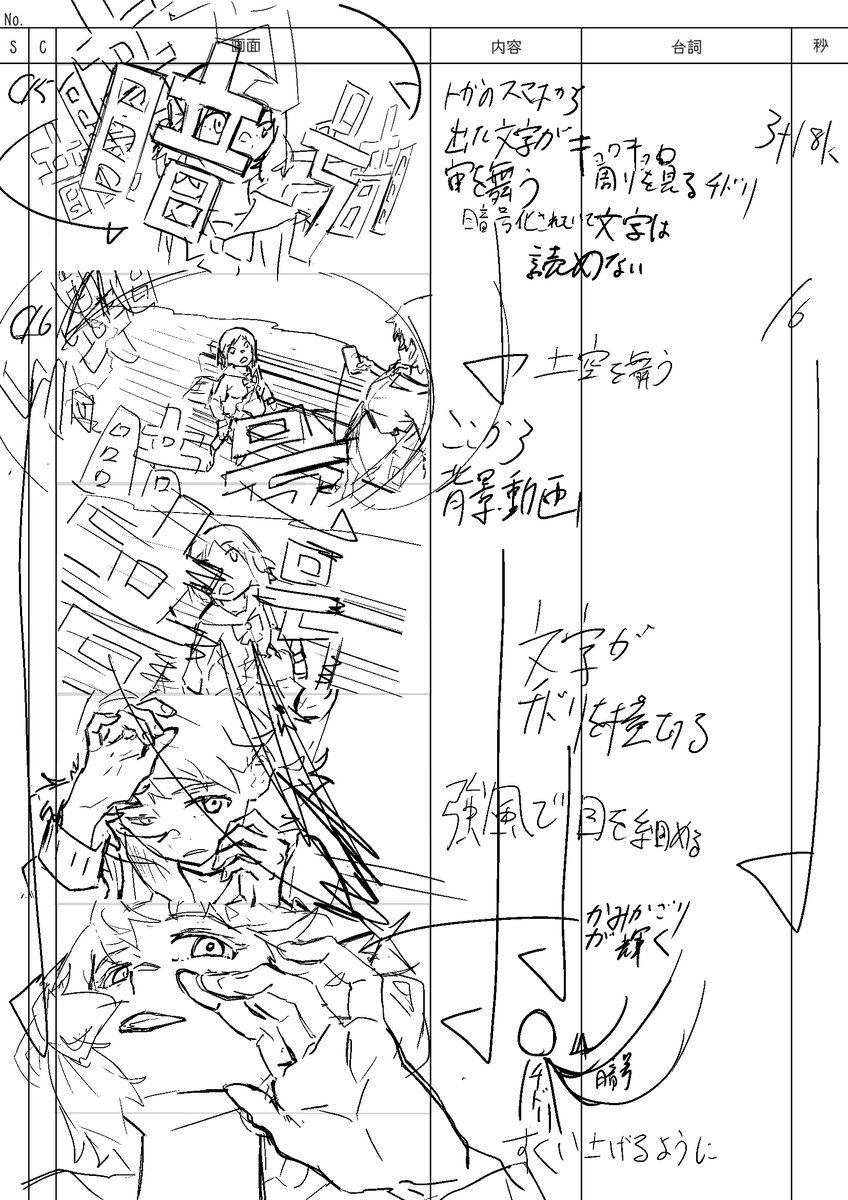 No.
S C 画面 内容 台詞 秒
C15
トガのスマホから
出た文字が
宙を舞う
キョロキョロ
周りを見るチドリ
暗号化されていて文字は
読めない
3+18k
C16
16
土空を舞う
ここから
背景動画
文字が
チドリを横切る
強風で目を細める
かみかざり
が輝く
チドリ
暗号
すくい上げるように